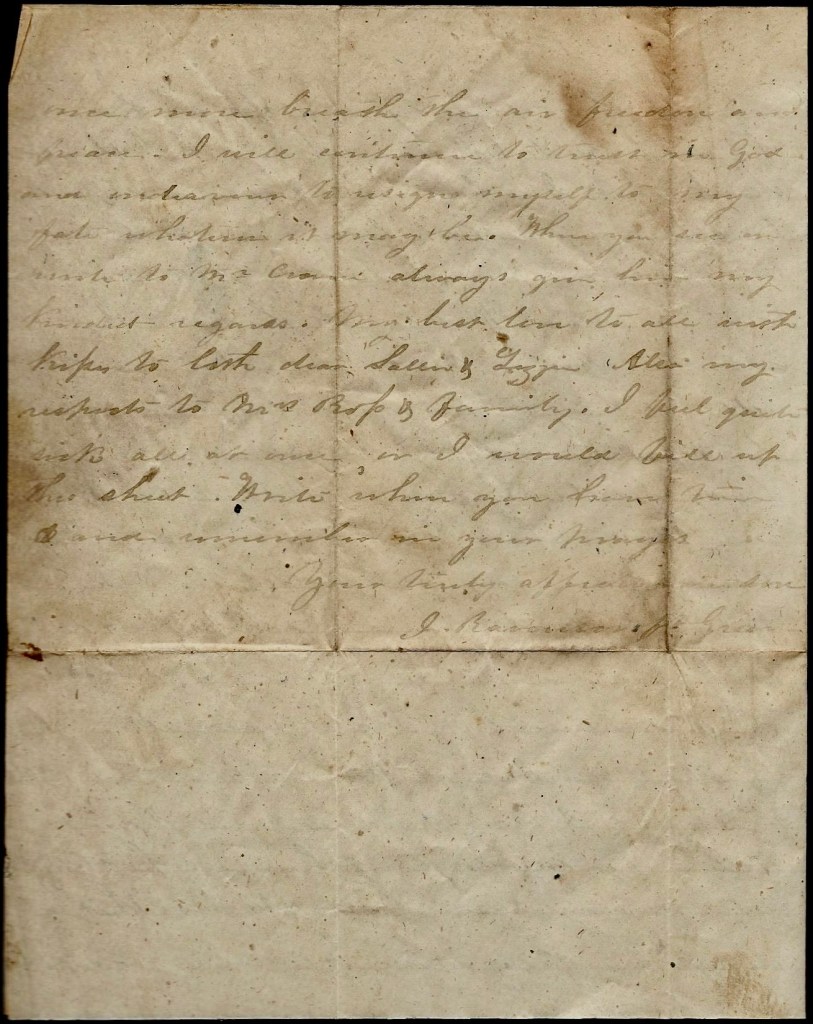 once more breath the air freedom an
peace. I will continue to trust in God
and endeavour to resign myself to my
fate whatever it may be. When you see or
write to Mr always give him my
kindest regards. My best love to all with
kisses to both dear Sallie & Lizzie Also my
respects to Mrs Ross & Family. I feel quite
sick all at once or I would fill up
this sheet. Write when you have time
& and remember me in your prayers
Your truly son
J.